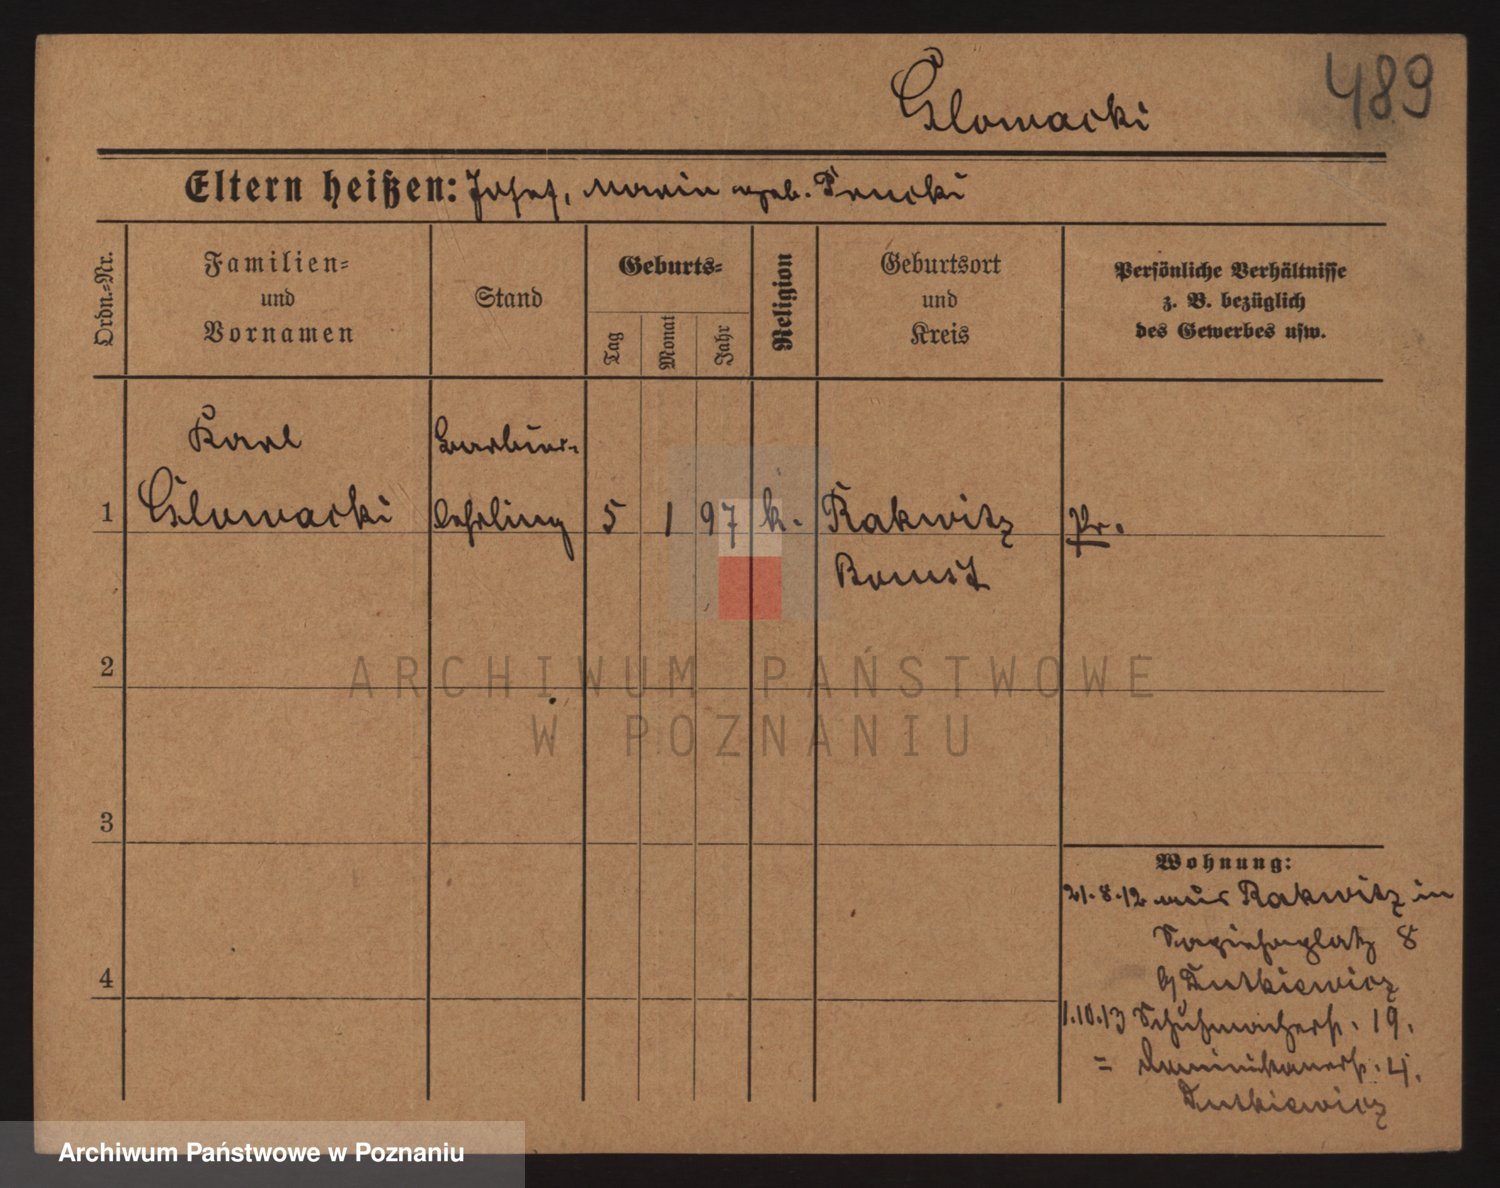 489
Glowacki
Eltern heißen: Josef, Maria geb.
Ordn.-Nr.
Familien-
und
Vornamen
Stand
Geburts-
Tag
Monat
Jahr
Religion
Geburtsort
und
Kreis
Persönliche Verhältnisse
z. B. bezüglich
des Gewerbes usw.
Karl Barbier-
1 Glowacki lehrling 5 1 97 k. Rakwitz Pr.
Bomst
2
ARCHIWUM PAŃSTWOWE
W POZNANIU
3
Wohnung:
21.8.12 aus Rakwitz in
Sapiehaplatz 8
b/ Dutkiewicz
4
1.10.13 Schuhmacherstr. 19.
= Dominikanerstr. 4.
Dutkiewicz
Archiwum Państwowe w Poznaniu